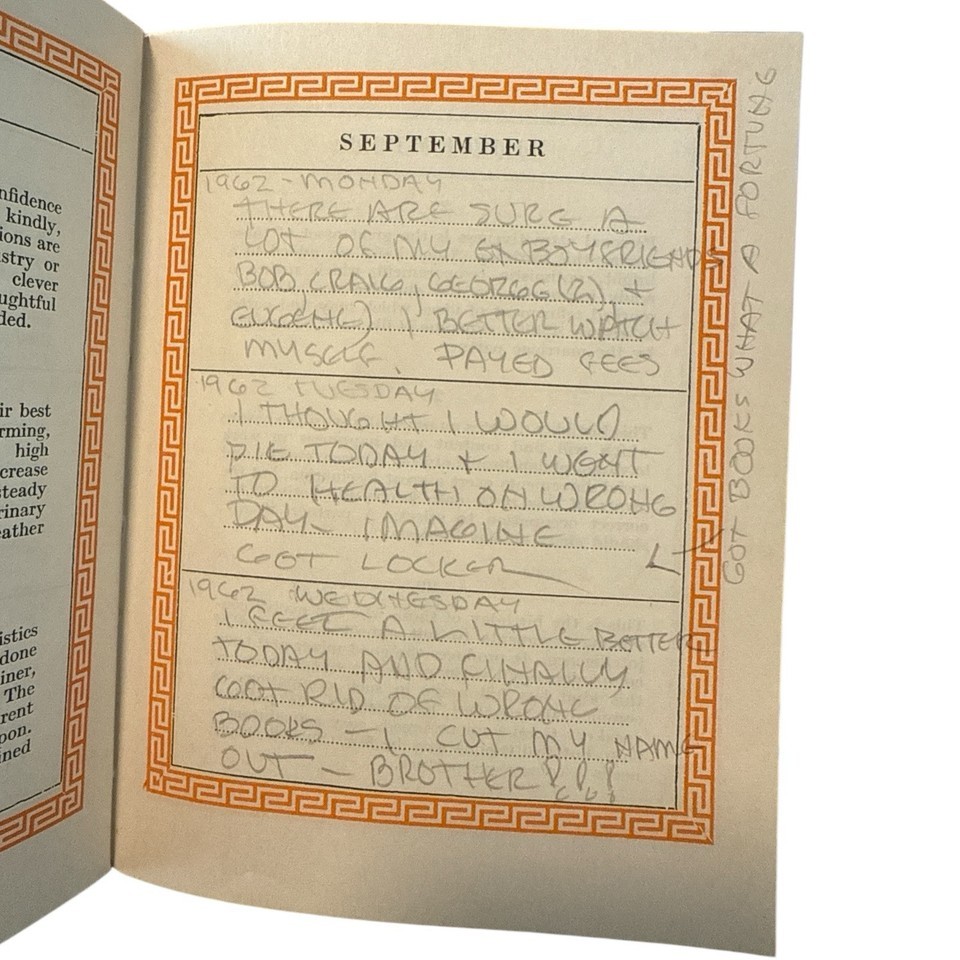 nfidence
kindly,
ions are
stry or
clever
ughtful
ded.
ir best
rming,
high
crease
steady
rinary
eather
istics
done
iner,
The
rent
oon.
ined
SEPTEMBER
1962 - MONDAY
THERE ARE SURE A
LOT OF MY EX BOYFRIENDS
BOB, CRAIG, GEORGE (2), +
EUGENE) I BETTER WATCH
MYSELF. PAYED FEES
1962 TUESDAY
I THOUGHT I WOULD
DIE TODAY + I WENT
TO HEALTH ON WRONG
DAY - IMAGINE
GOT LOCKER
GOT BOOKS WHAT A FORTUNE
1962 WEDNESDAY
I FEEL A LITTLE BETTER
TODAY AND FINALLY
GOT RID OF WRONG
BOOKS - I CUT MY NAME
OUT - BROTHER!!!